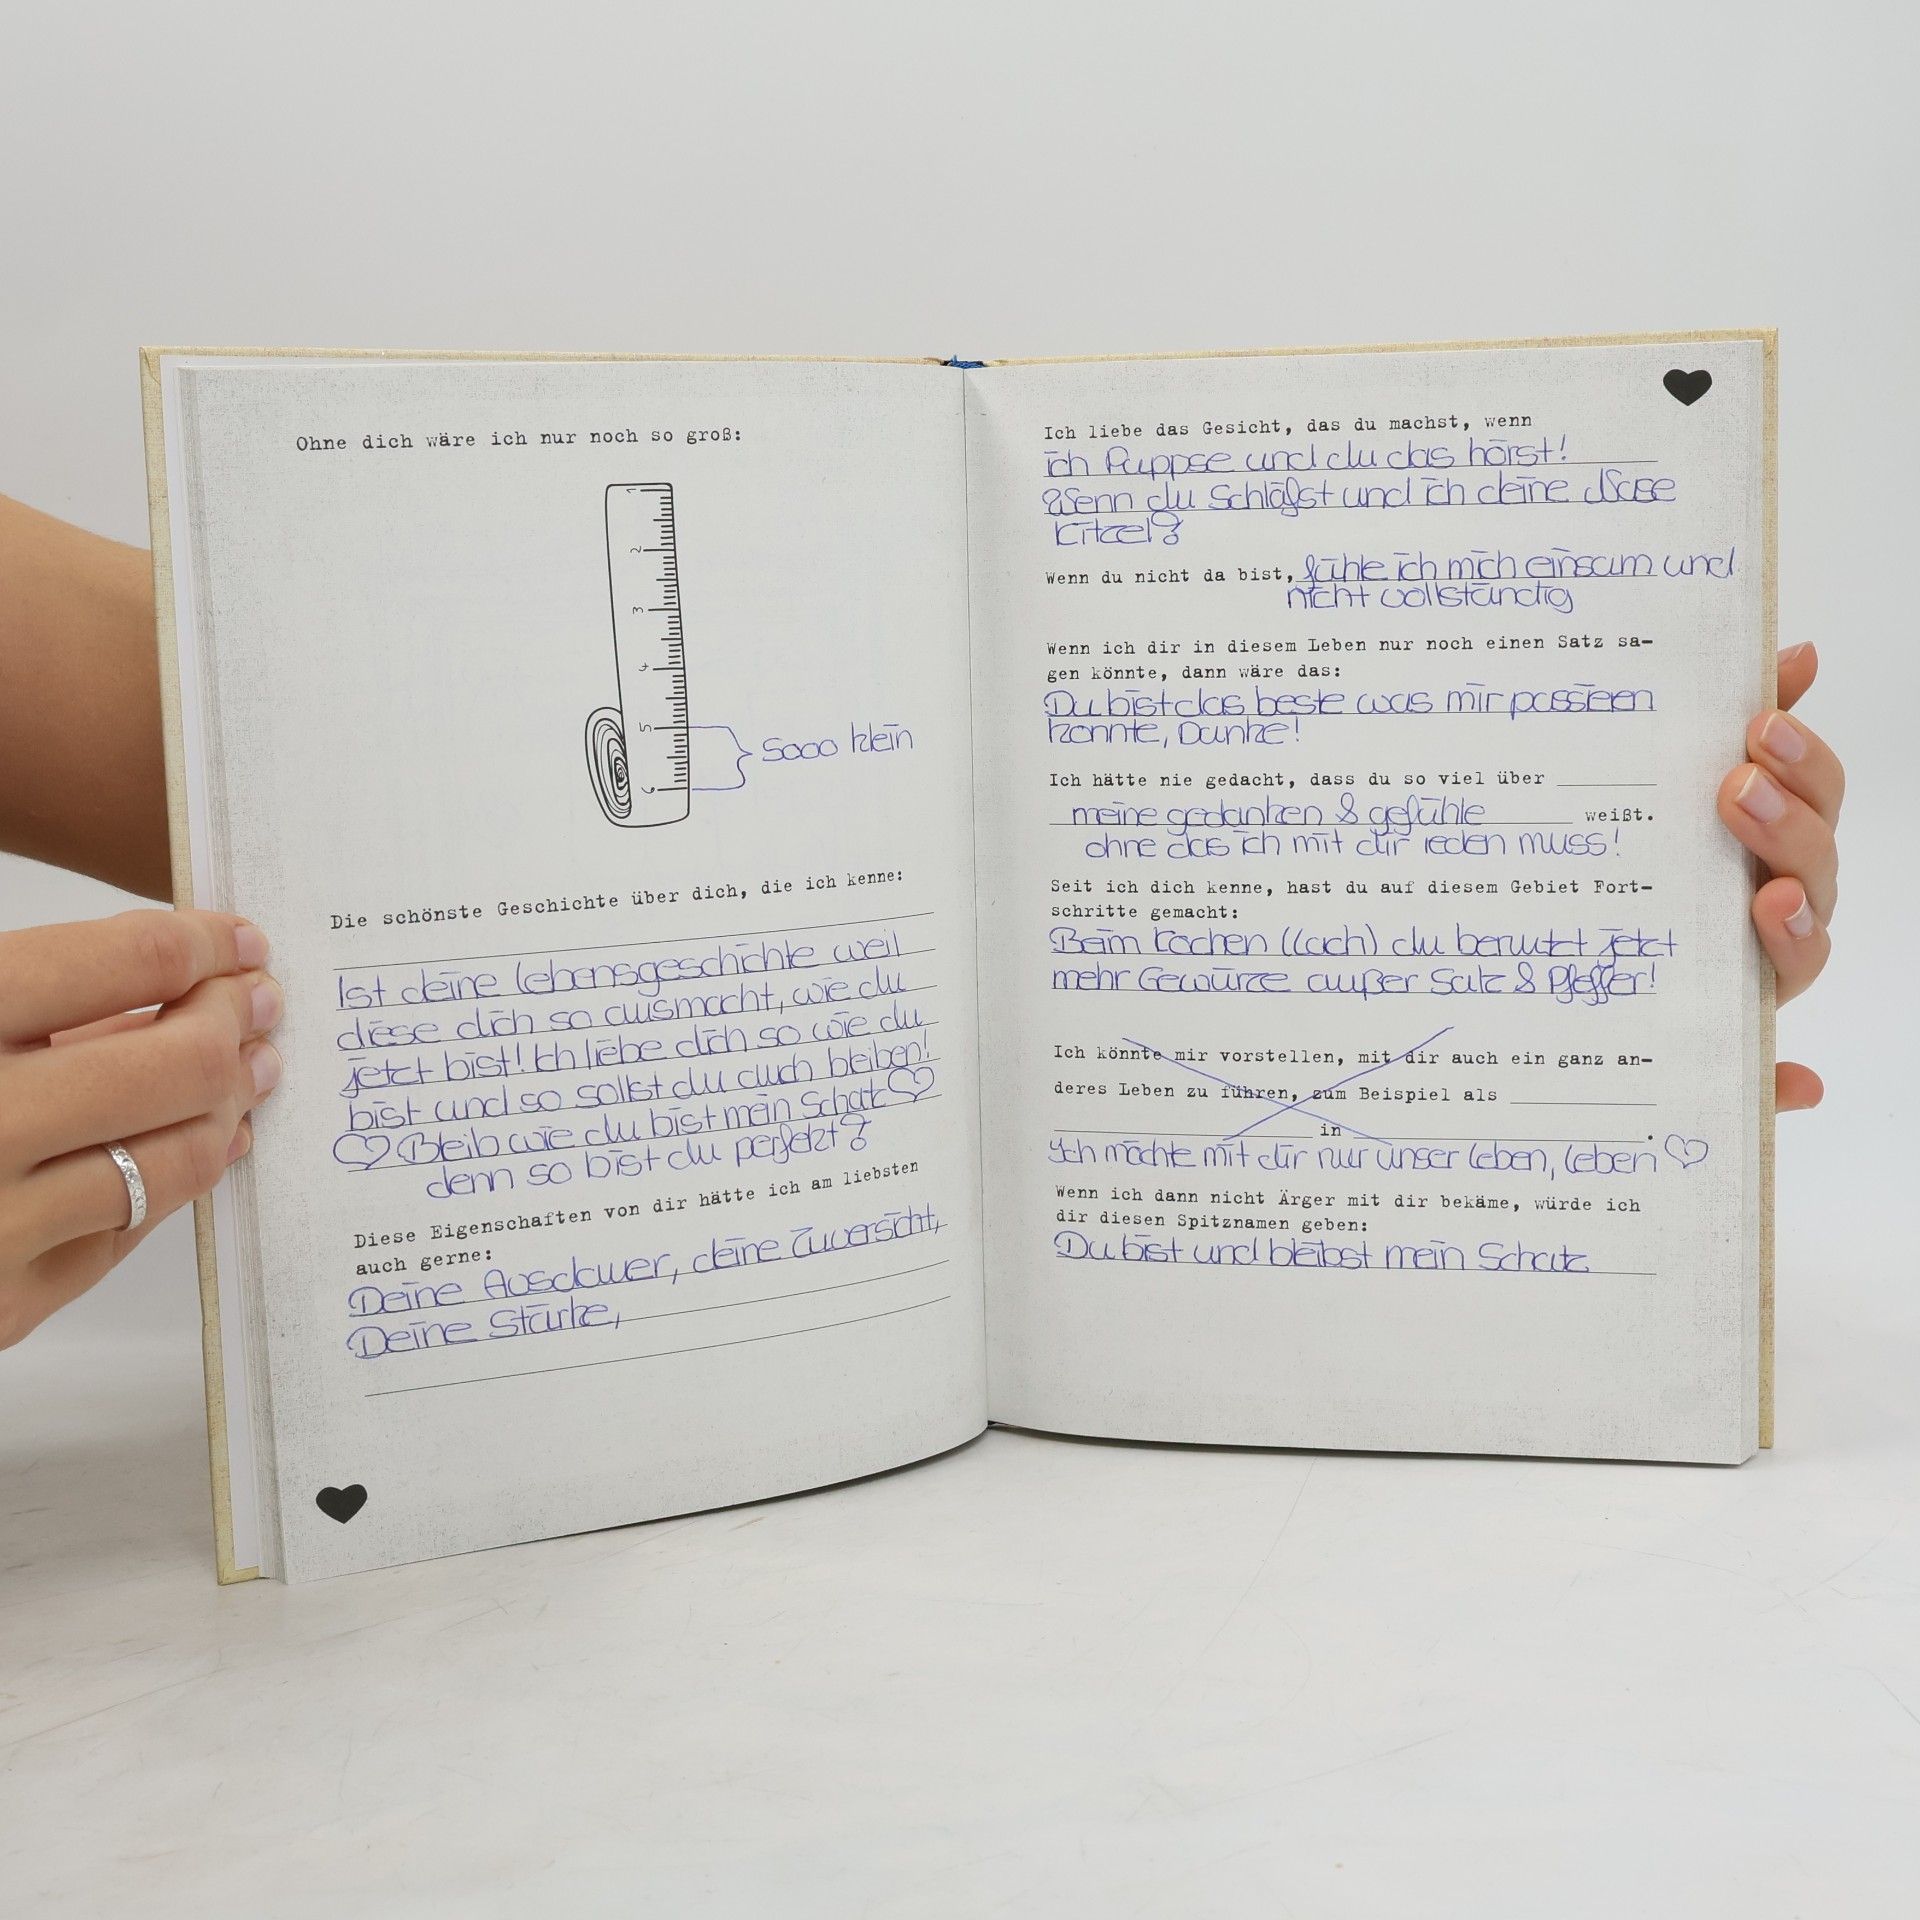 Ohne dich wäre ich nur noch so groß:
1
2
3
4
5
6
sooo klein
Die schönste Geschichte über dich, die ich kenne:
Ist deine lebensgeschichte weil
diese dich so ausmacht, wie du
jetzt bist! Ich liebe dich so wie du
bist und so sollst du auch bleiben!
♡ Bleib wie du bist mein Schatz ♡
denn so bist du perfekt?
Diese Eigenschaften von dir hätte ich am liebsten
auch gerne:
Deine Ausdauer, deine Zuversicht,
Deine Stärke,
Ich liebe das Gesicht, das du machst, wenn
ich Puppse und du das hörst!
Wenn du Schläfst und ich deine Nase
kitzel?
Wenn du nicht da bist, fühle ich mich einsam und
nicht vollständig
Wenn ich dir in diesem Leben nur noch einen Satz sa-
gen könnte, dann wäre das:
Du bist das beste was mir passieren
konnte, Danke!
Ich hätte nie gedacht, dass du so viel über
meine gedanken & gefühle weißt.
ohne das ich mit dir reden muss!
Seit ich dich kenne, hast du auf diesem Gebiet Fort-
schritte gemacht:
Beim kochen (lach) du benutzt jetzt
mehr Gewürze außer Salz & Pfeffer!
Ich könnte mir vorstellen, mit dir auch ein ganz an-
deres Leben zu führen, zum Beispiel als
in .
Ich möchte mit dir nur unser leben, leben ♡
Wenn ich dann nicht Ärger mit dir bekäme, würde ich
dir diesen Spitznamen geben:
Du bist und bleibst mein Schatz